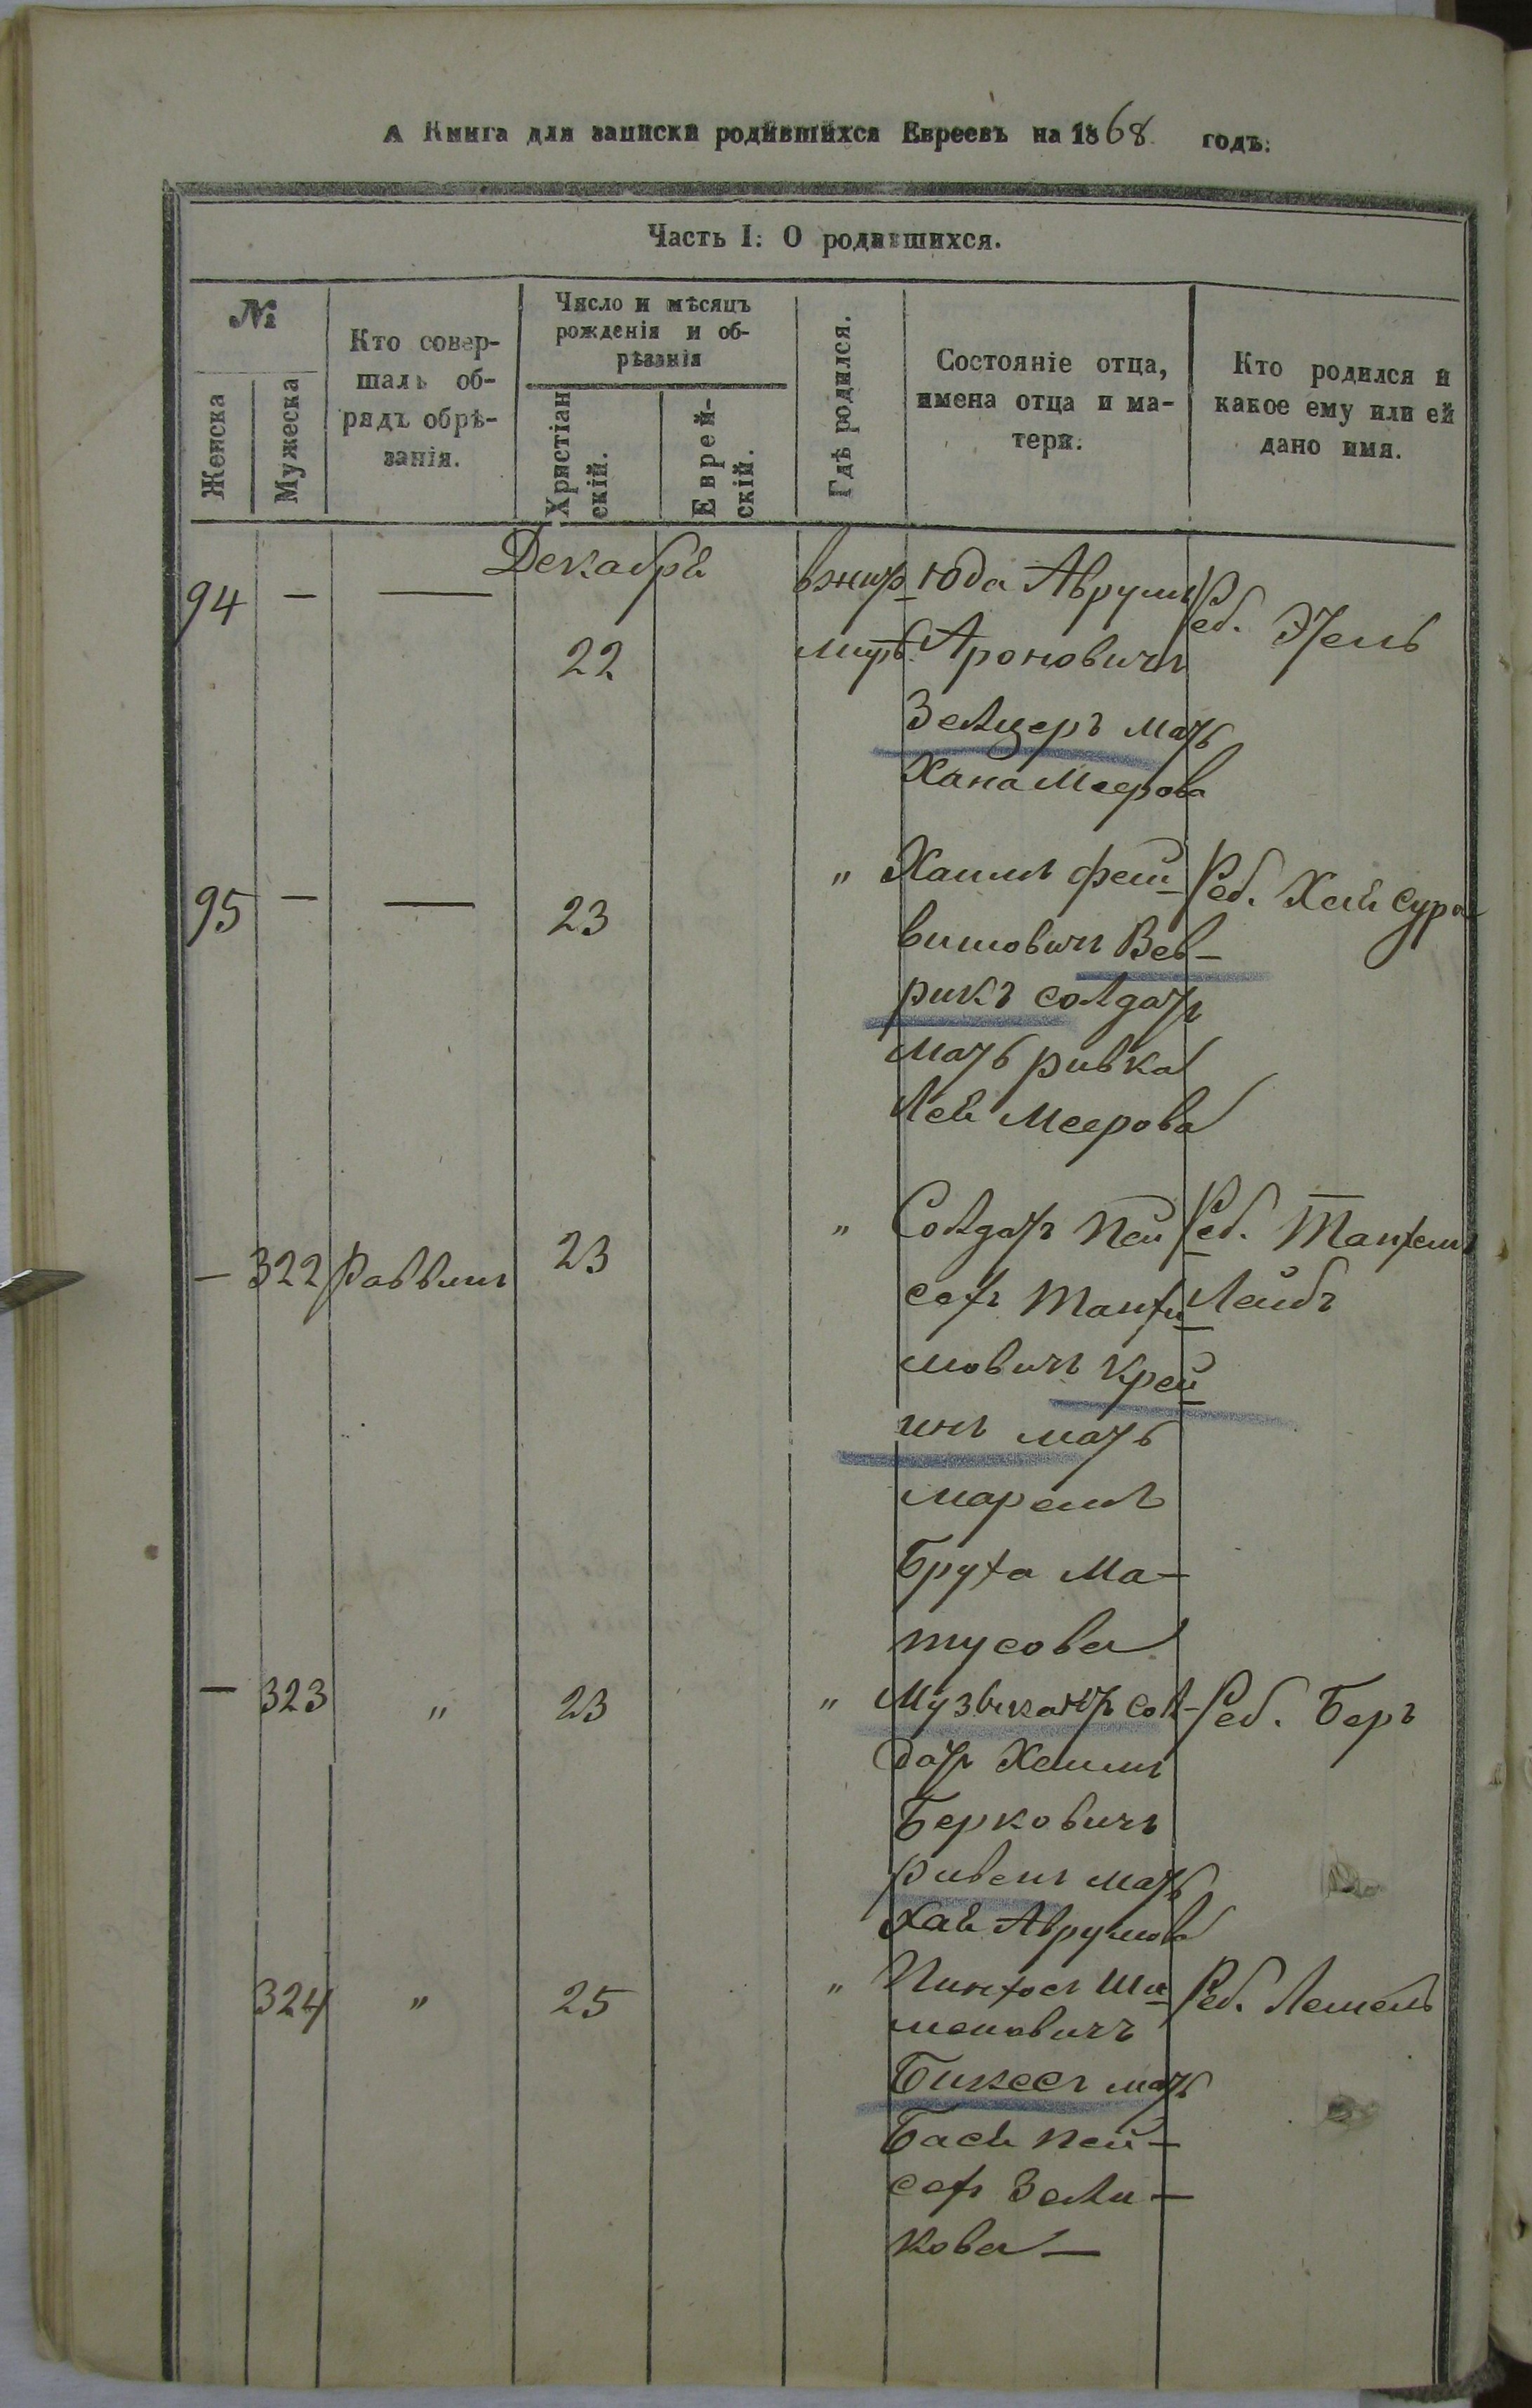 А Книга для записки родившихся Евреевъ на 1868 годъ:
Часть I: О родившихся.
№
Женска
Мужеска
Кто совер-
шалъ об-
рядъ обрѣ-
занія.
Число и мѣсяцъ
рожденія и об-
рѣзанія
Христіан
скій.
Еврей-
скій.
Гдѣ родился.
Состояніе отца,
имена отца и ма-
тери.
Кто родился и
какое ему или ей
дано имя.
Декабрѣ
94 — — 22
вжит
Юда Аврумъ
Ароновичъ
Зельцеръ мать
Хана Меерова
Реб. Этель
95 — — 23 "
Хаимъ Фей-
вишовичъ Вев-
рикъ солдатъ
мать Ривка
Лея Меерова
Реб. Хая Сура
— 322 Раввинъ 23 "
Солдатъ Пей
сахъ Танхи-
мовичъ Крей
инъ мать
Мареимъ
Бруха Ма-
тусова
Реб. Танхемъ
Лейбъ
— 323 " 23 "
Музыкантъ сол-
датъ Хаимъ
Берковичъ
Ривенъ мать
Хая Аврумова
Реб. Беръ
324 " 25 "
Пинхосъ Ши-
меновичъ
Бикесъ мать
Бася Пей-
сахъ Зели-
кова —
Реб. Лемель